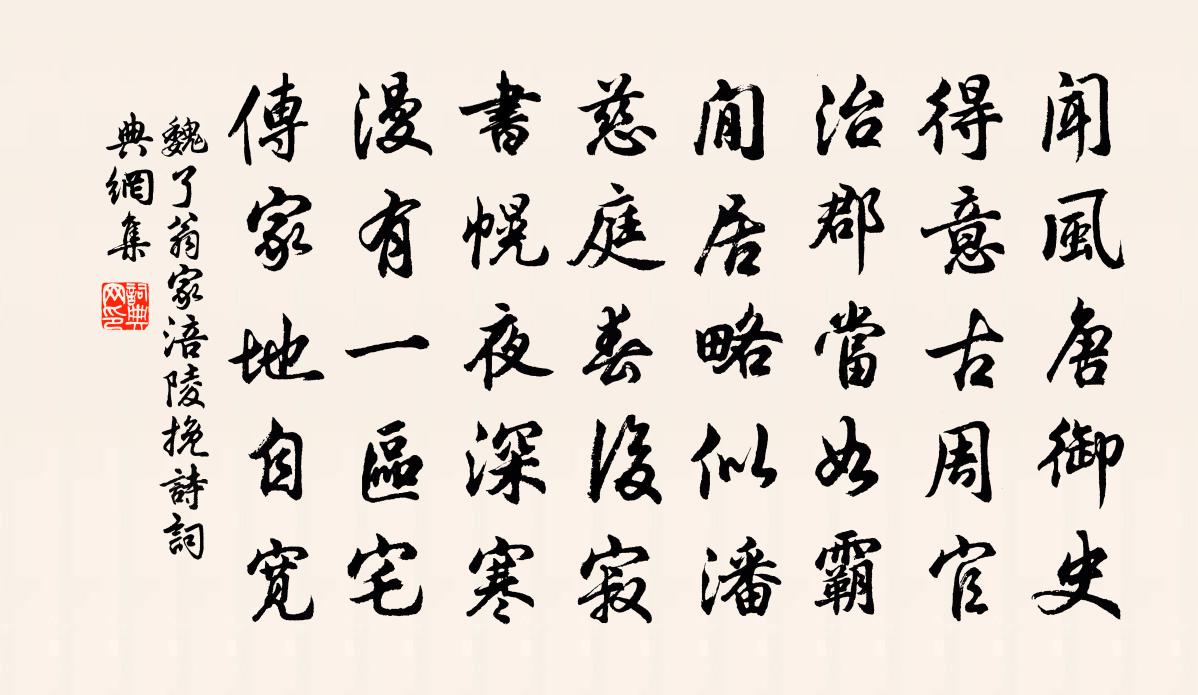 闻風唐御史
得意古周官
治郡當如霸
閒居略似潘
慈庭春後寂
書幌夜深寒
漫有一區宅
傳家地自寬
魏了翁家涪陵挽詩詞
典網集
詞典
网印